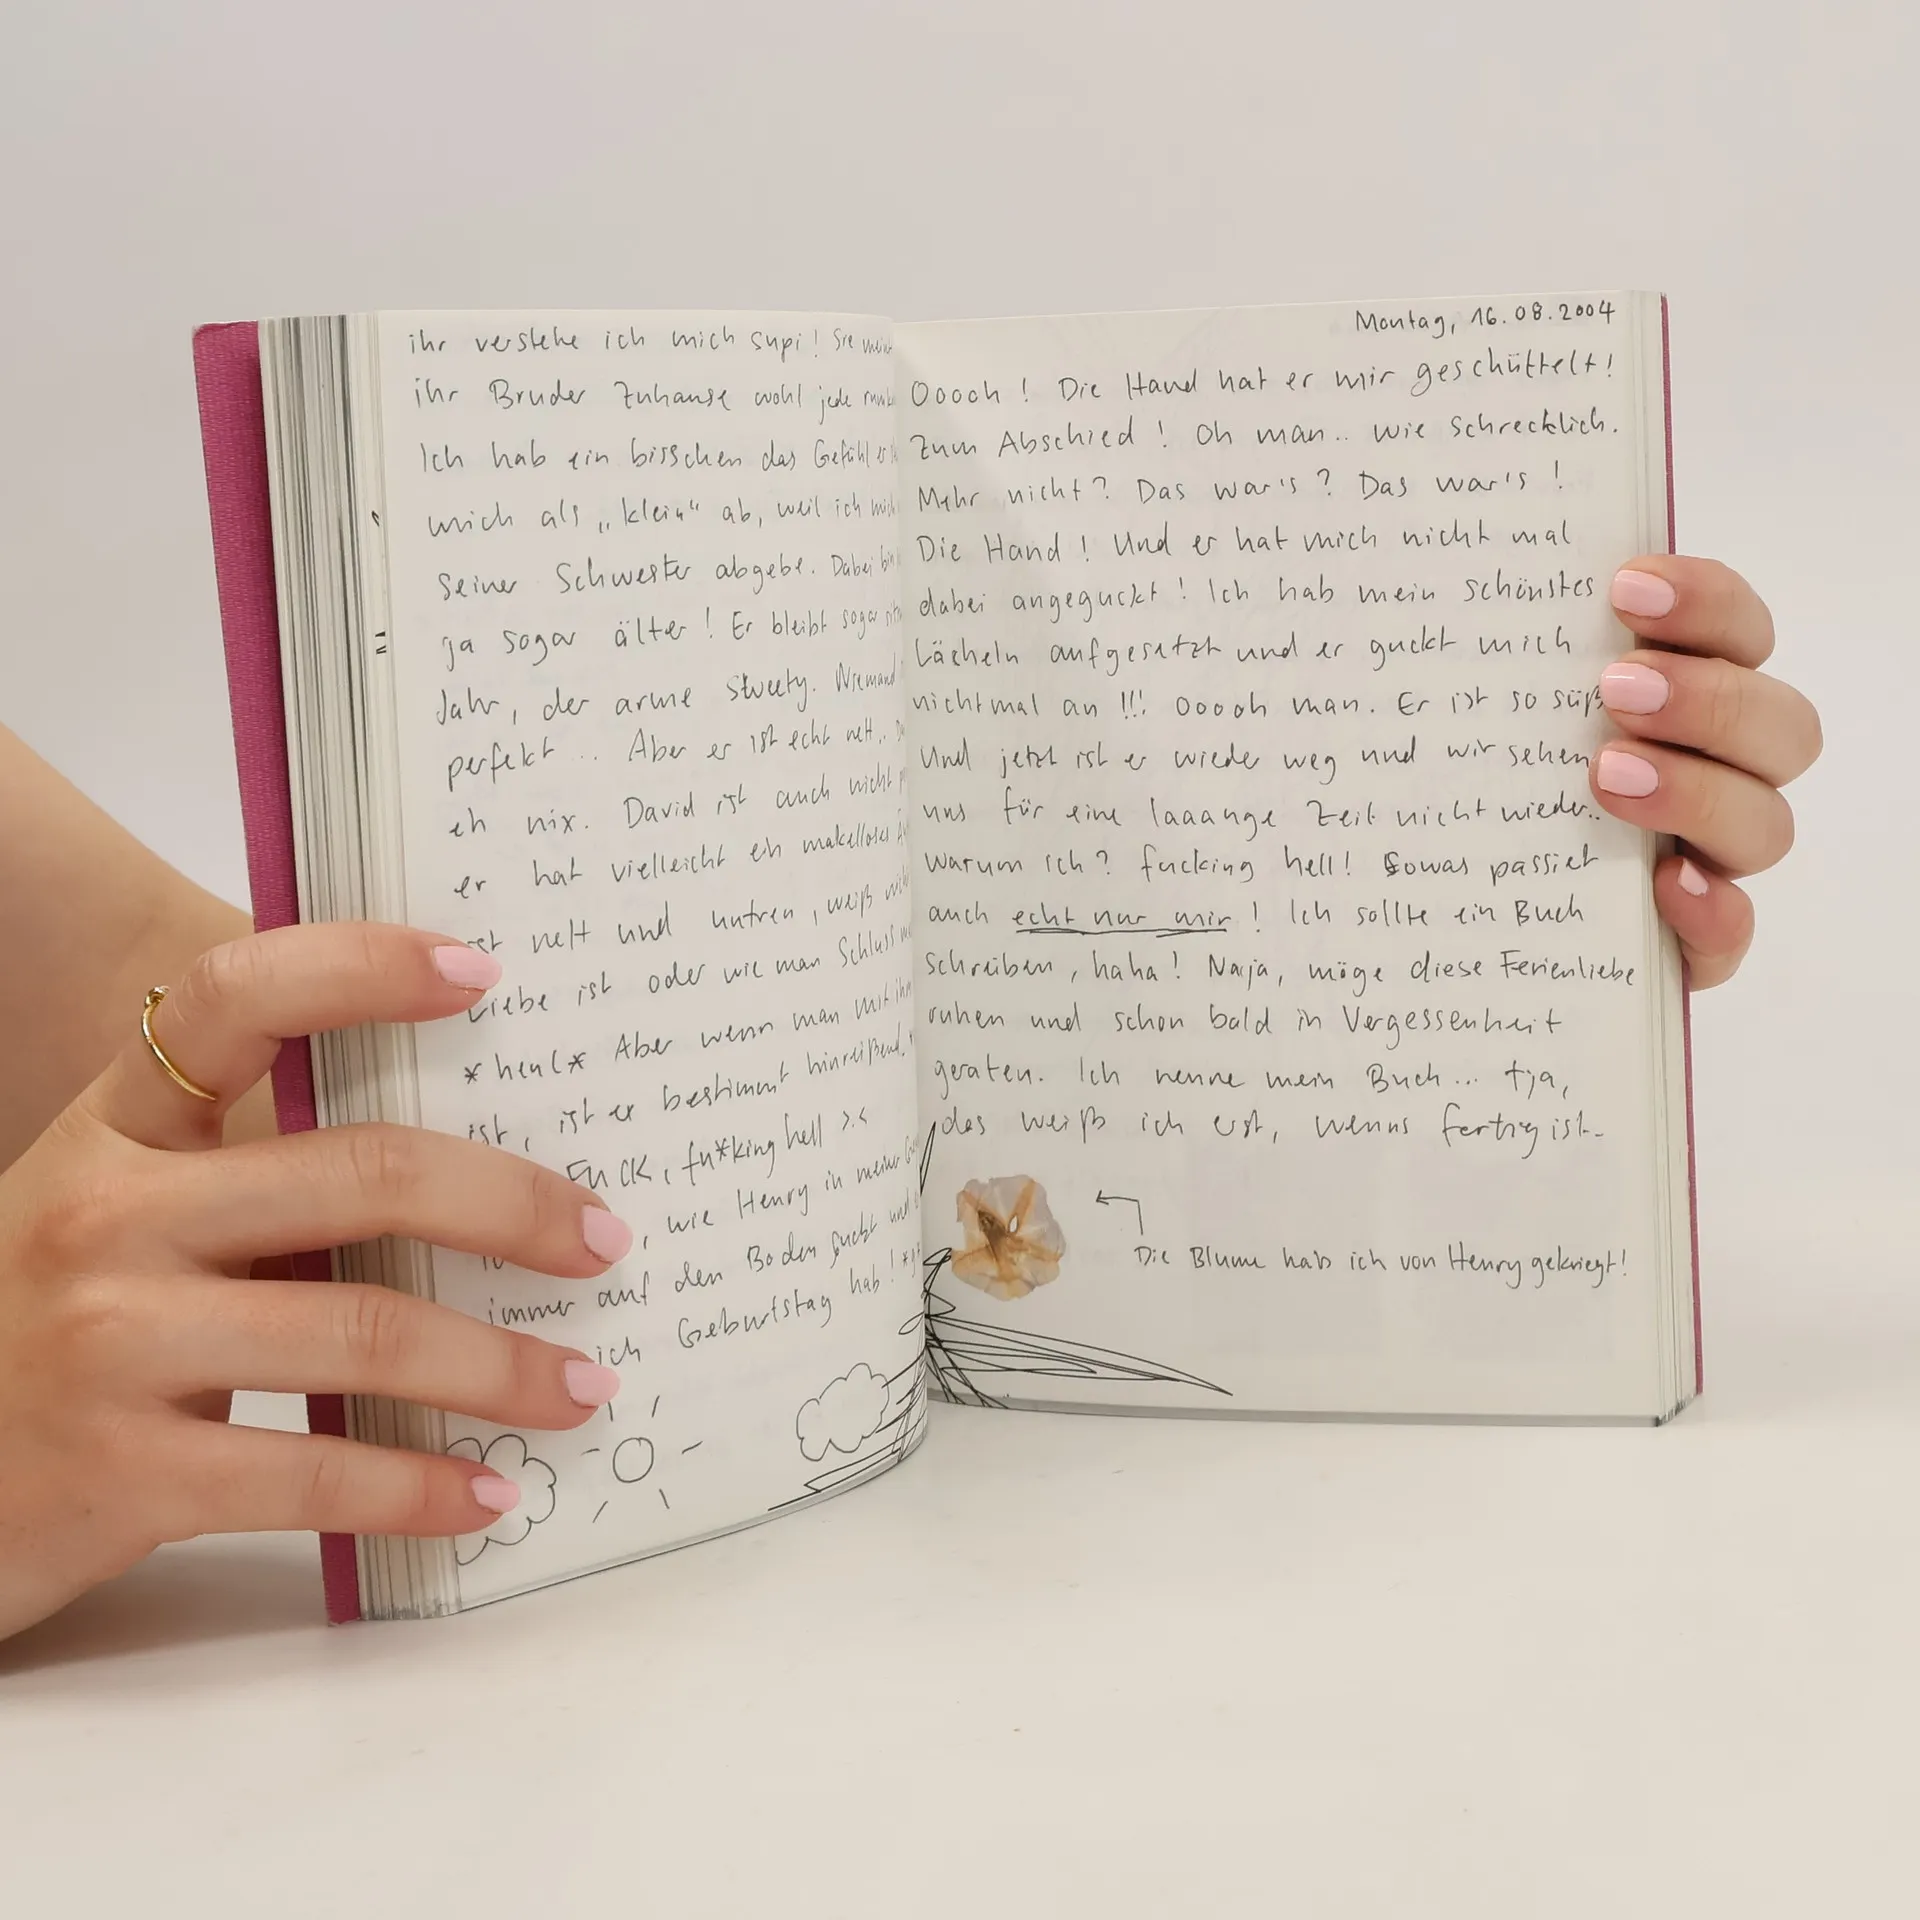 ihr verstehe ich mich supi! Sie
ihr Bruder Zuhause wohl jede
Ich hab ein bisschen das Gefühl er
mich als „klein“ ab, weil ich mich
seiner Schwester abgebe. Dabei bin
ja sogar älter! Er bleibt sogar
Jahr, der arme Sweety. Niemand
perfekt... Aber er ist echt nett..
eh nix. David ist auch nicht
er hat vielleicht ein makelloses
nett und untreu, weiß
Liebe ist oder wie man Schluss
*heul* Aber wenn man mit ihm
ist, ist er bestimmt hinreißend.
FUCK, fu*king hell >.<
, wie Henry in meine
immer auf den Boden guckt und
ich Geburtstag hab!
Montag, 16.08.2004
Ooooh! Die Hand hat er mir geschüttelt!
Zum Abschied! Oh man.. wie schrecklich.
Mehr nicht? Das war's? Das war's!
Die Hand! Und er hat mich nicht mal
dabei angeguckt! Ich hab mein schönstes
Lächeln aufgesetzt und er guckt mich
nichtmal an!!! Ooooh man. Er ist so süß
Und jetzt ist er wieder weg und wir sehen
uns für eine laaange Zeit nicht wieder..
warum ich? fucking hell! Sowas passiert
auch echt nur mir! Ich sollte ein Buch
schreiben, haha! Naja, möge diese Ferienliebe
ruhen und schon bald in Vergessenheit
geraten. Ich nenne mein Buch... tja,
das weiß ich erst, wenns fertig ist.
Die Blume hab ich von Henry gekriegt!